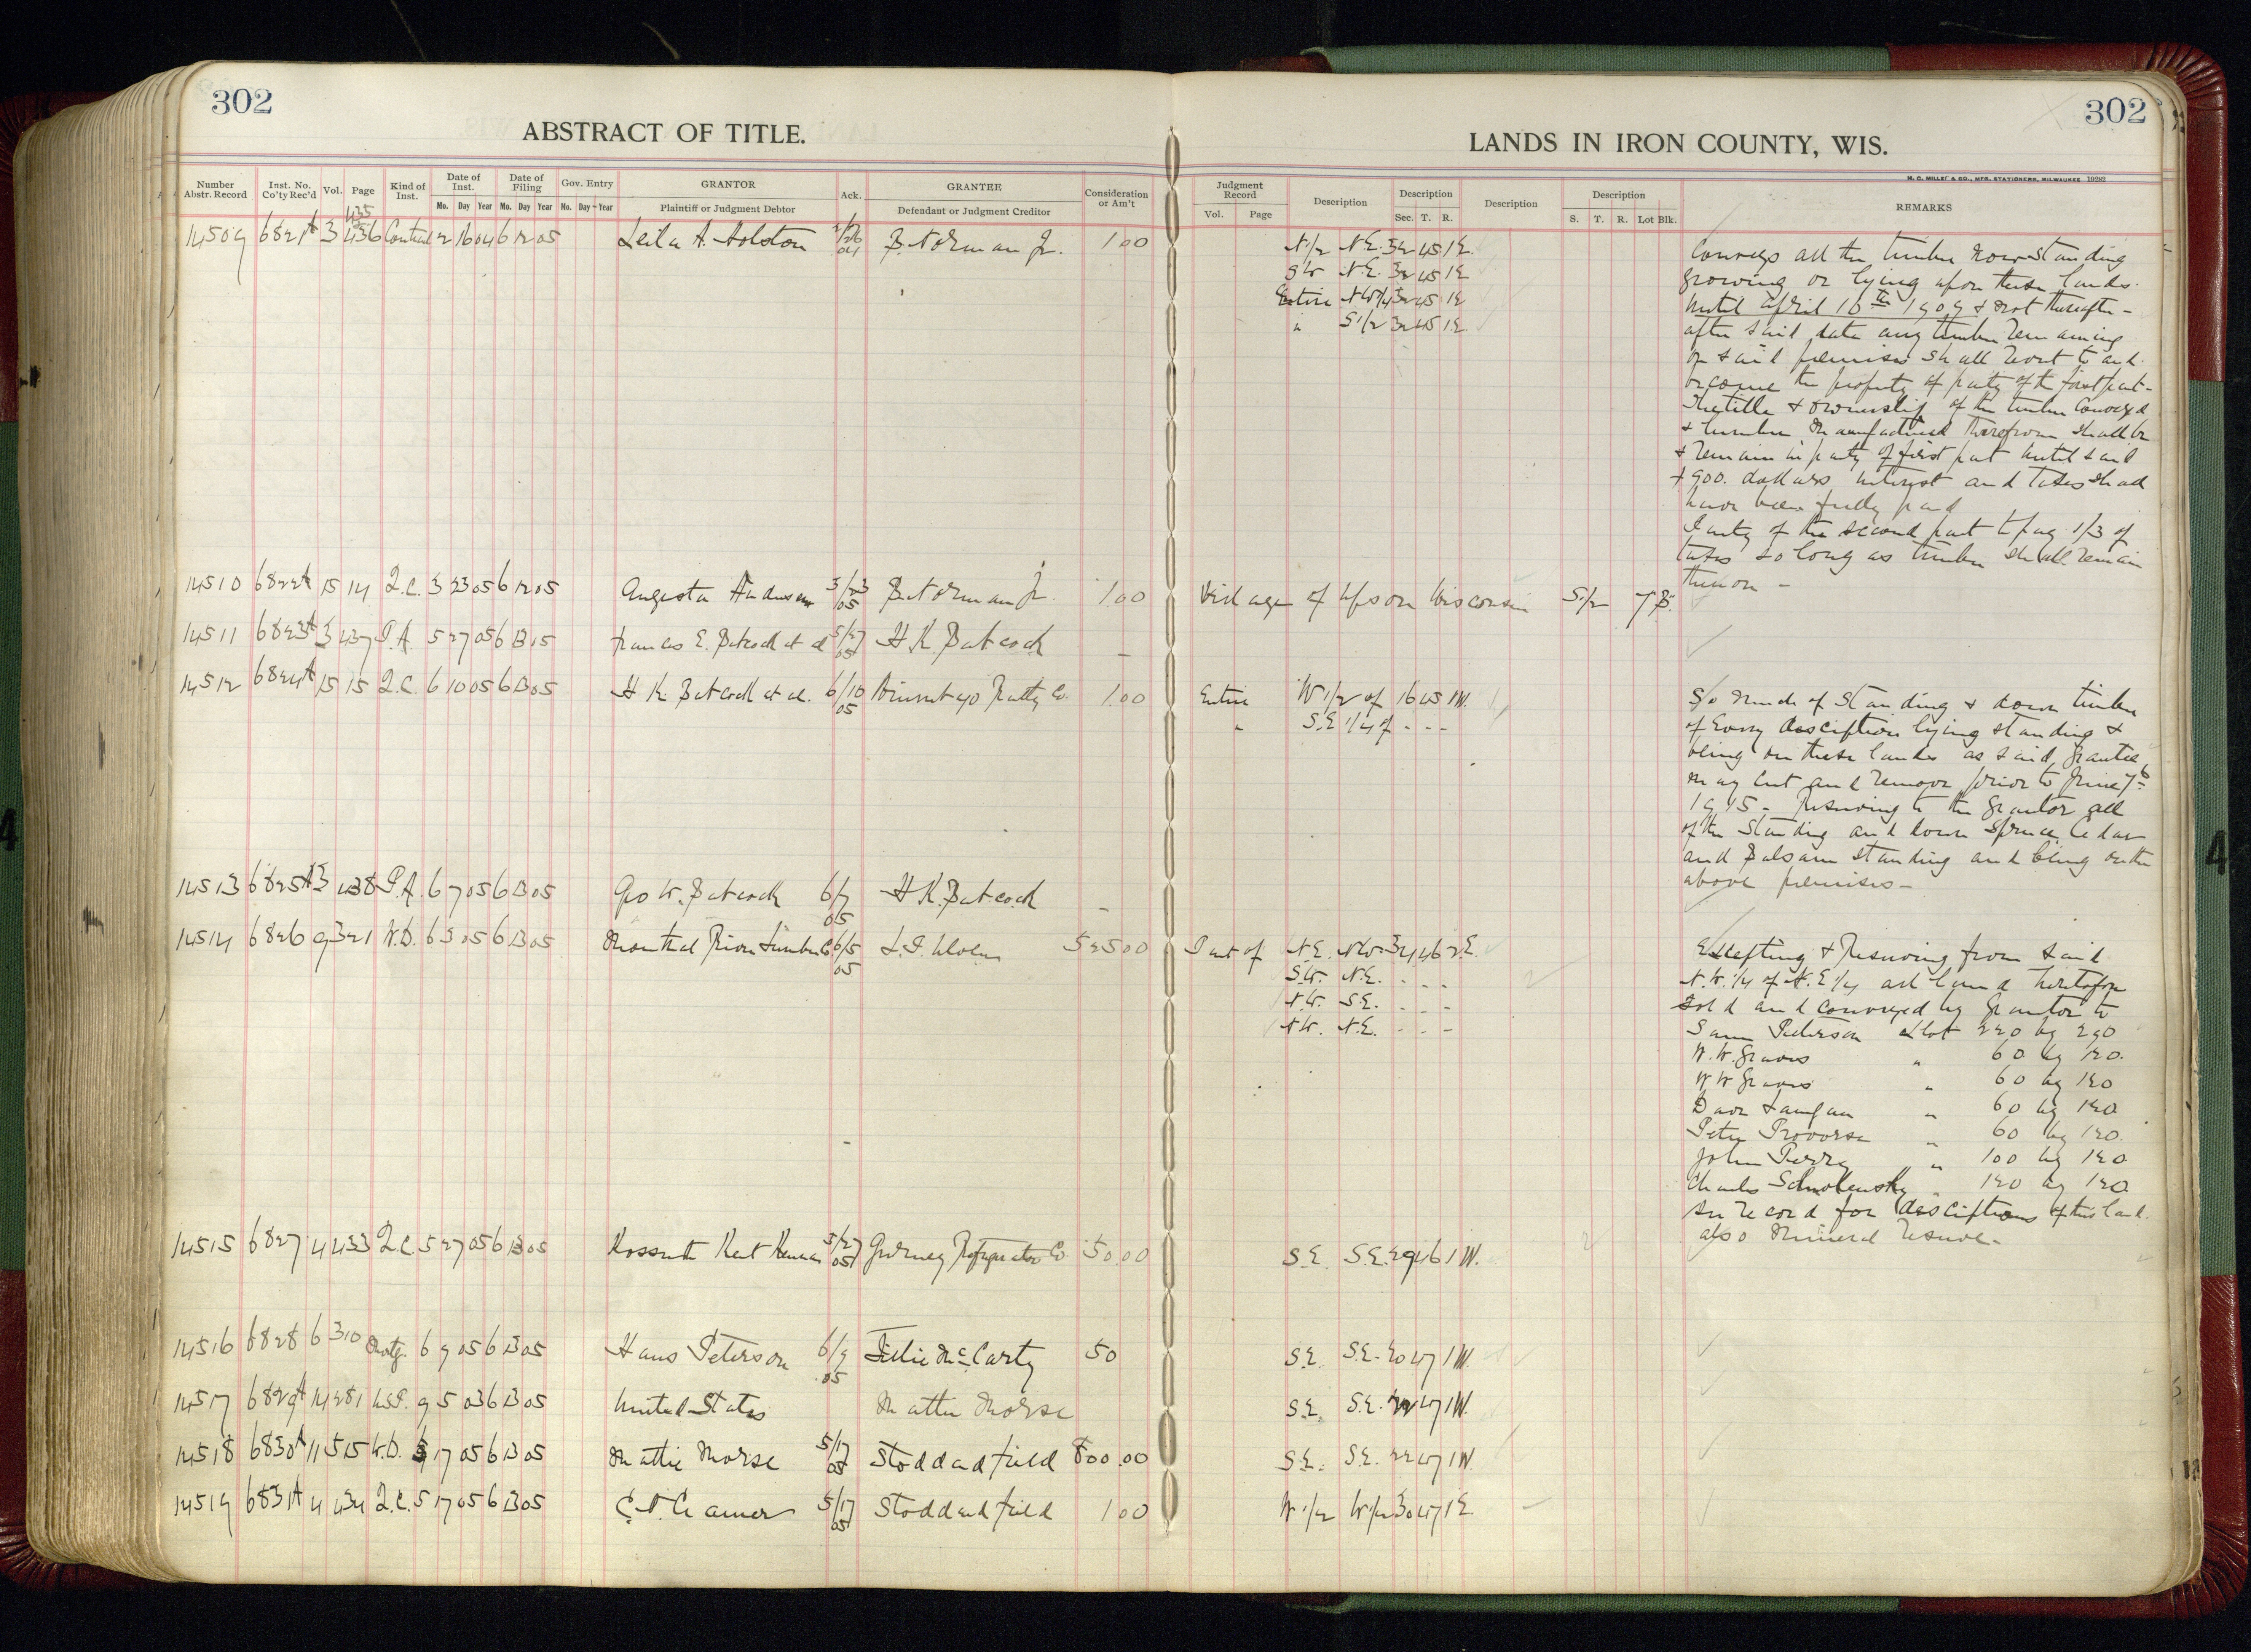 302
302
ABSTRACT OF TITLE.
LANDS IN IRON COUNTY, WIS.
H. C. MILLER CO., MFG. STATIONERS, MILWAUKEE 19282
Number Abstr. Record
Inst. No. Co'ty Rec'd
Vol.
Page
Kind of Inst.
Date of Inst.
Mo. Day Year
Date of Filing
Mo. Day Year
Gov. Entry
Mo. Day Year
GRANTOR
Plaintiff or Judgment Debtor
Ack.
GRANTEE
Defendant or Judgment Creditor
Consideration or Am't
Judgment Record
Vol. Page
Description
Description
Sec. T. R.
Description
Description
S. T. R. Lot Blk.
REMARKS
14509 6821A 3 435 436 2 16 04 6 12 05 Leila A. Holston 2/26 04 B. Norman Jr. 1.00
N 1/2 N.E. 32 45 1E
SW N.E. 32 45 1E
Entire NW1/4 32 45 1E
" S 1/2 32 45 1E
Conveys all the timber now standing
growing or lying upon these lands.
until April 16th 1909 & not thereafter -
after said date any timber remaining
on said premises shall revert to and
become the property of party of the first part -
The title & ownership of the timber conveyed
& lumber manufactured therefrom shall be
& remain in party of first part until said
dollars interest and taxes shall
have been fully paid
Party of the second part to pay 1/3 of
taxes so long as timber shall remain
thereon -
14510 6822A 15 14 Q.C. 3 23 05 6 12 05 Augusta Anderson 3/23 05 B. Norman Jr. 1.00 Village of Upson Wisconsin S 1/2 7 B.
14511 6823A 3 437 P.A. 5 27 05 6 13 15 Frances E. Babcock et al 5/27 05 H. K. Babcock -
14512 6824A 15 15 Q.C. 6 10 05 6 13 05 H. K. Babcock et al. 6/10 05 Realty Co. 1.00 Entire W 1/2 of 16 45 1W.
" S.E 1/4 of - - -
So much of standing & down timber
of every description lying standing &
being on these lands as said grantee
may cut and remove prior to June
1915 - Reserving to the grantor all
of the standing and down Spruce Cedar
and Balsam standing and being on the
above premises -
14513 6825A 3 438 P.A. 6 7 05 6 13 05 Geo W. Babcock 6/7 05 H. K. Babcock -
14514 6826 9 321 W.D. 6 5 05 6 13 05 Montreal River Lumber Co. 6/5 05 525.00 Part of N.E. NW 34 46 2E.
S.W. N.E. - - -
N.W. S.E. - - -
N.W. N.E. - - -
Excepting & Reserving from said
N.W. 1/4 of N.E 1/4 all land heretofore
sold and conveyed by grantor to
Sam Peterson a lot 220 by 290
W.W. Graves " 60 by 120.
W W Graves " 60 by 120
Dave " 60 by 120
Peter " 60 by 120.
John " 100 by 120
Charles " 120 by 120
See record for descriptions of this land.
also Mineral Reserve -
14515 6827 4 433 Q.C. 5 27 05 6 13 05 Kossuth Kent Kennan 5/27 05 Gurney Refrigerator Co. 50.00 S.E. S.E. 29 46 1W.
14516 6828 6 310 Mortg. 6 9 05 6 13 05 Hans Peterson 6/9 05 McCarty 50 S.E. S.E. 20 47 1W.
14517 6829A 14 281 U.S.P. 9 5 03 6 13 05 United States Mattie Morse S.E. S.E. 22 47 1W.
14518 6830A 11 515 W.D. 5 17 05 6 13 05 Mattie Morse 5/17 05 Stoddard Field 800.00 S.E. S.E. 22 47 1W.
14519 6831A 4 434 Q.C. 5 17 05 6 13 05 Cramer 5/17 05 Stoddard Field 1.00 W 1/2 W 1/2 30 47 1E